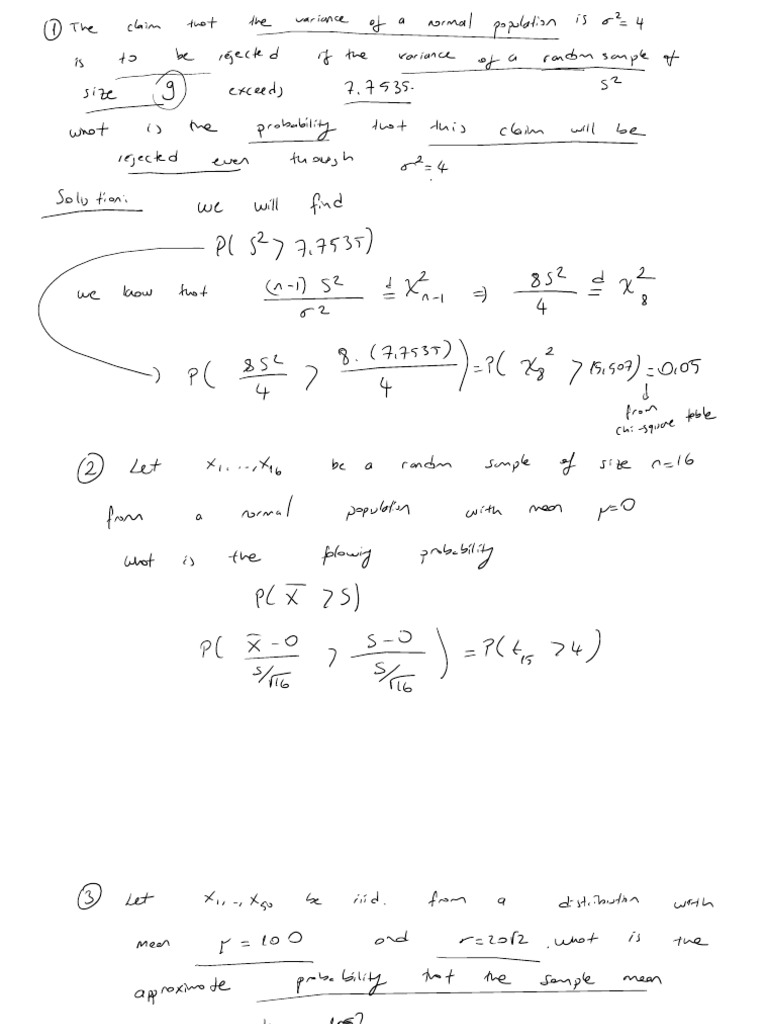 ① The claim that the variance of a normal population is σ²=4
is to be rejected if the variance of a random sample of
size 9 exceeds 7.7535. S²
what is the probability that this claim will be
rejected even though σ²=4
Solution: we will find
P( S² > 7.7535)
we know that (n-1) S² / σ² =ᵈ χ²ₙ₋₁ ⇒ 8S² / 4 =ᵈ χ²₈
P( 8S² / 4 > 8.(7.7535) / 4 ) = P( χ₈² > 15.507) = 0.05
from
chi-square table
② Let X₁,...,X₁₆ be a random sample of size n=16
from a normal population with mean μ=0
what is the flowing probability
P( X̄ > S)
P( X̄-0 / S/√16 > S-0 / S/√16 ) = P( t₁₅ > 4)
③ Let X₁,..,X₅₀ be iiid. from a distribution with
mean μ=100 and σ=20√2 .what is the
approximate probability that the sample mean